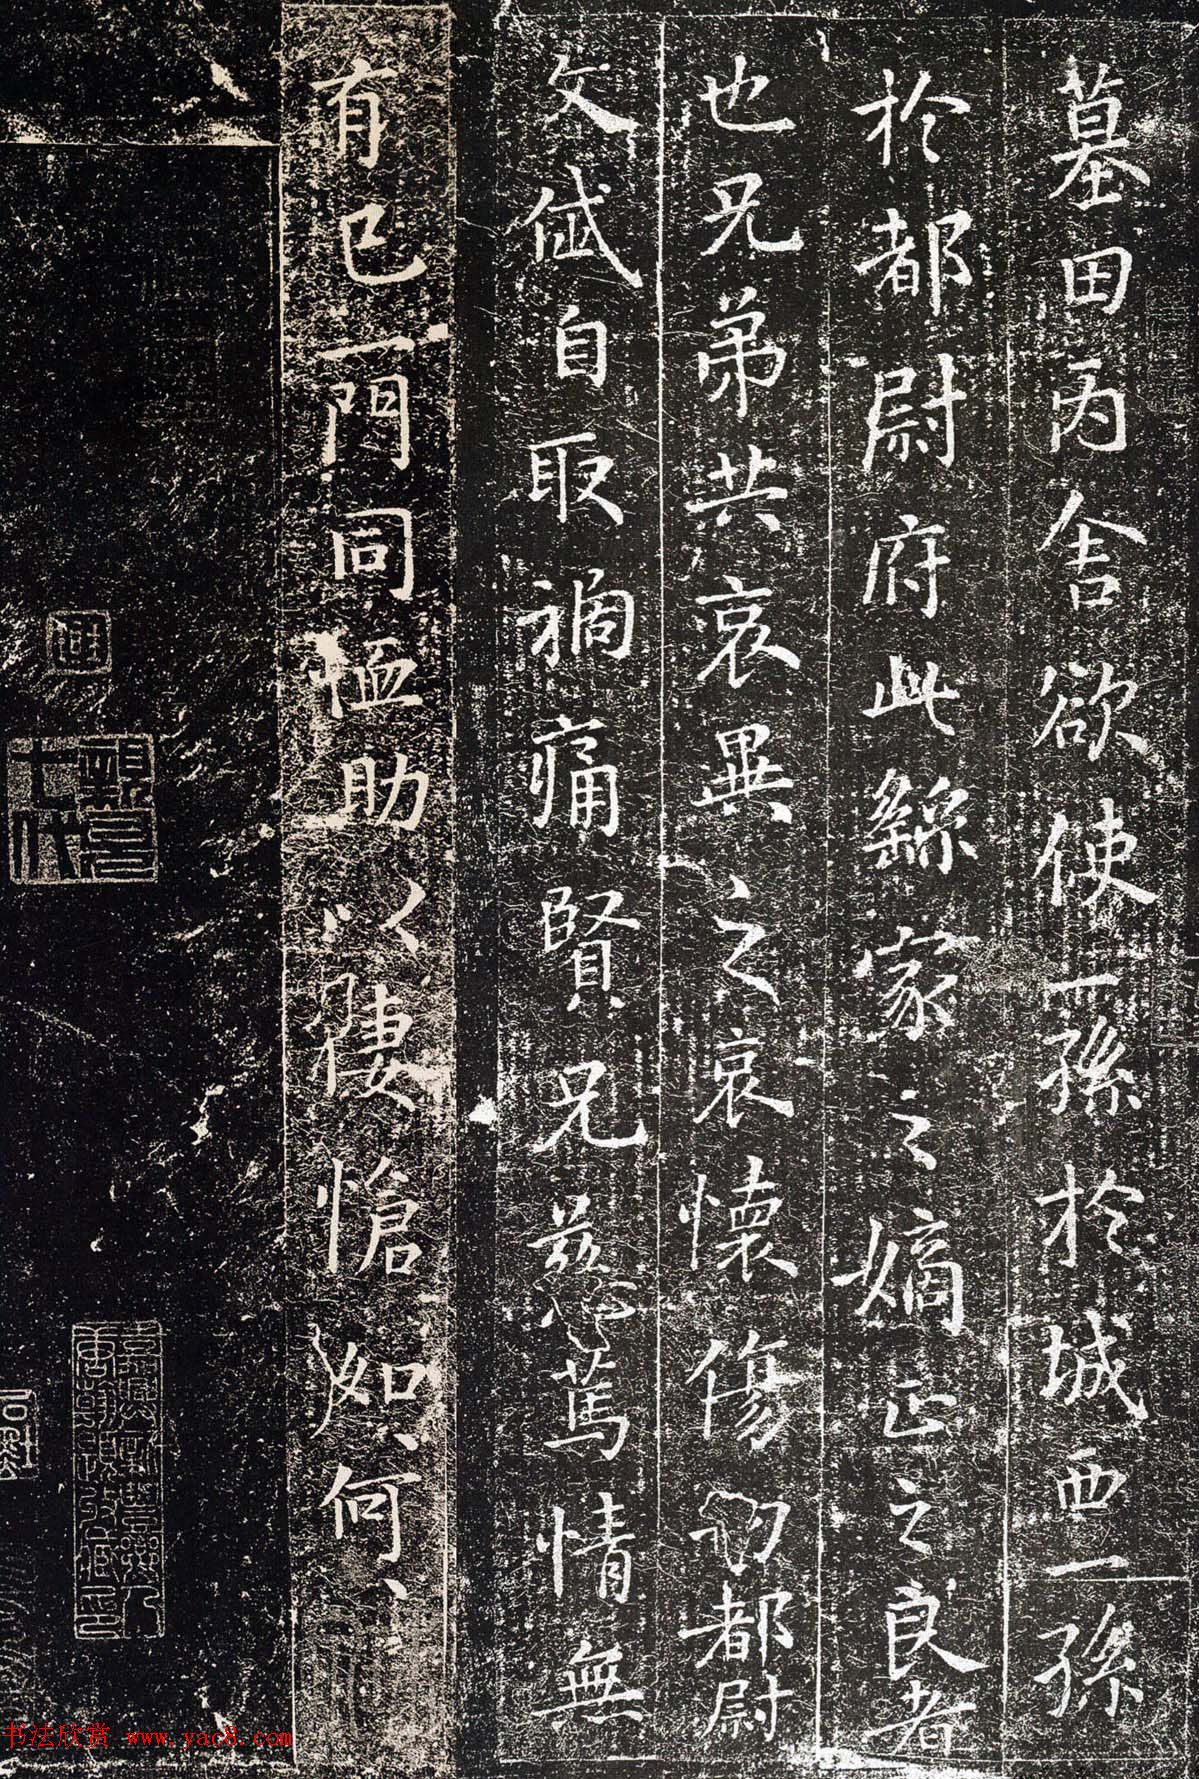 墓田丙舍欲使一孫於城西一孫
於都尉府此繇家之嫡正之良者
也兄弟共哀異之哀懷傷切都尉
文岱自取禍痛賢兄慈篤情無
有已一門同恤助以悽愴如、何、
书法欣赏 www.yac8.com